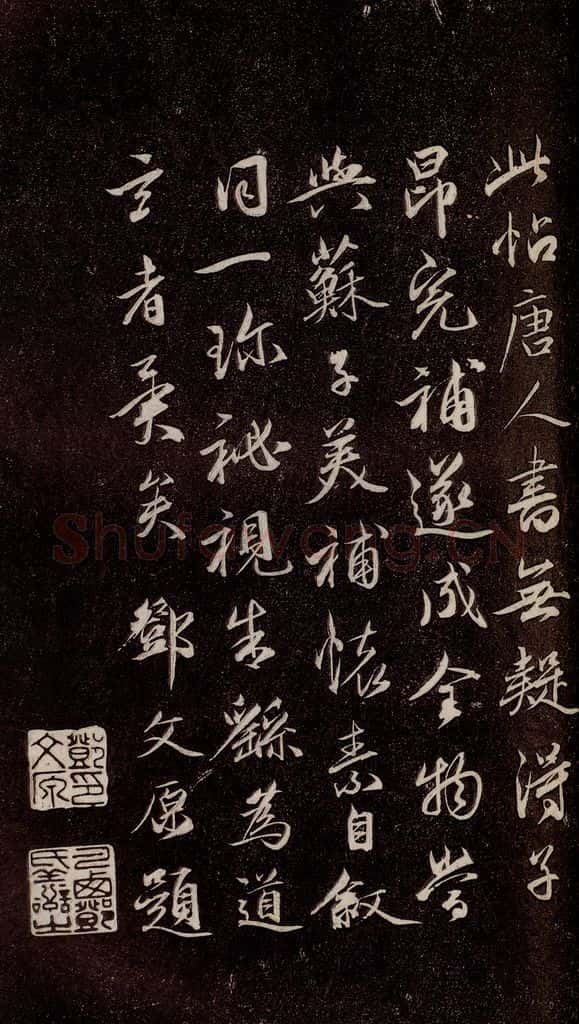 此帖唐人書無疑得子
昂完補遂成全物當
與蘇子美補懷素自敘
同一珍祕視朱繇為道
玄者異矣 鄧文原題
鄧文原印
巴西鄧氏善之
Shufawang.CN